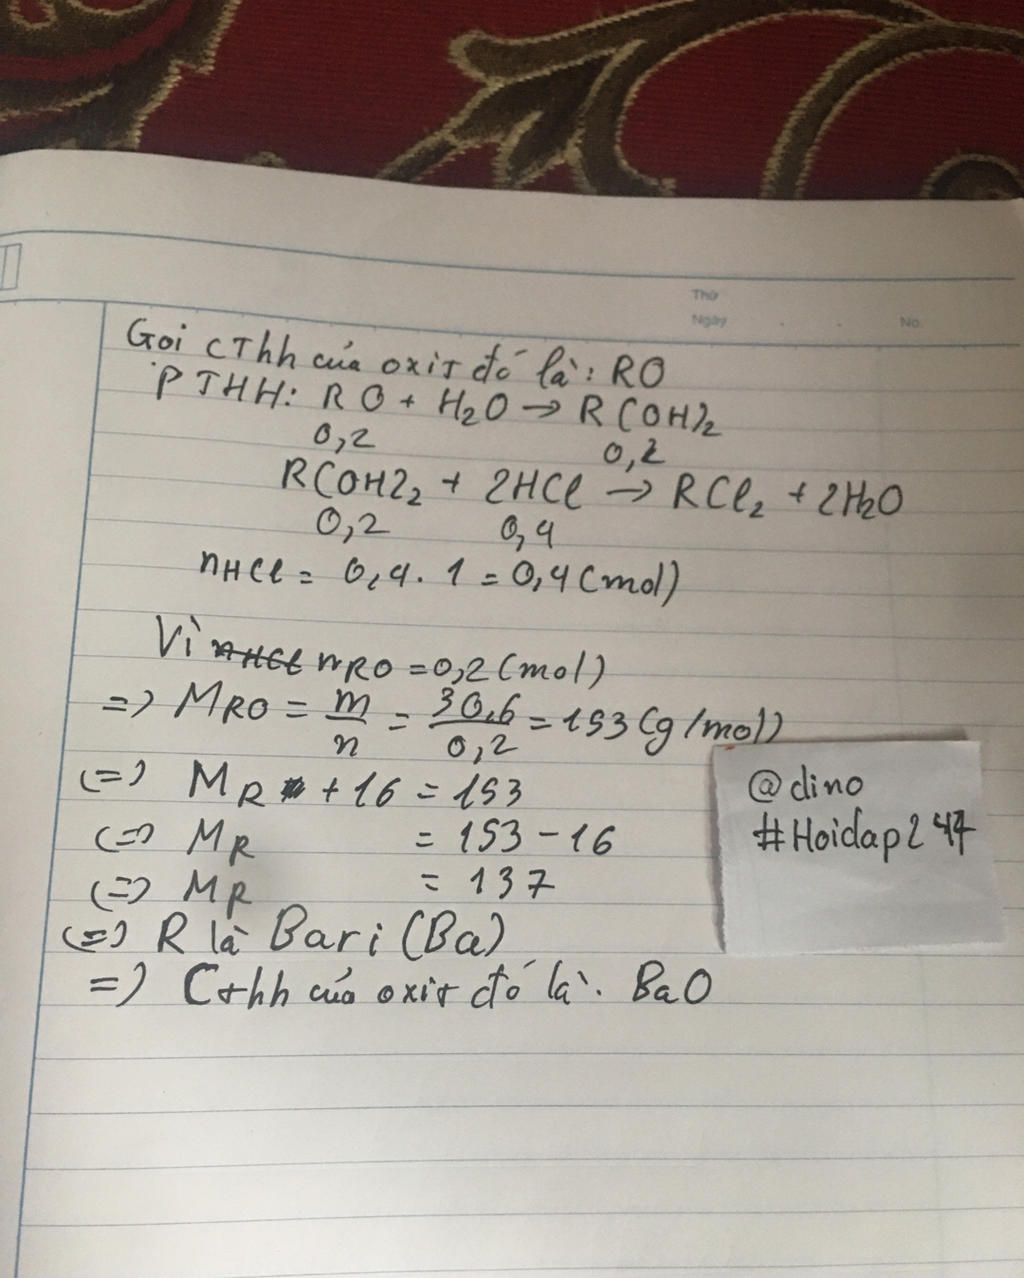 Thứ
Ngày
No.
Gọi CThh của oxit đó là: RO
PTHH: RO + H₂O → R(OH)₂
0,2 0,2
R(OH)₂ + 2HCl → RCl₂ + 2H₂O
0,2 0,4
nHCl = 0,4 . 1 = 0,4 (mol)
Vì nRO = 0,2 (mol)
=> MRO = m/n = 30,6/0,2 = 153 (g/mol)
(=) MR + 16 = 153
(=) MR = 153 - 16
(=) MR = 137
(=) R là Bari (Ba)
=) Cthh của oxit đó là: BaO
@dino
#Hoidap247